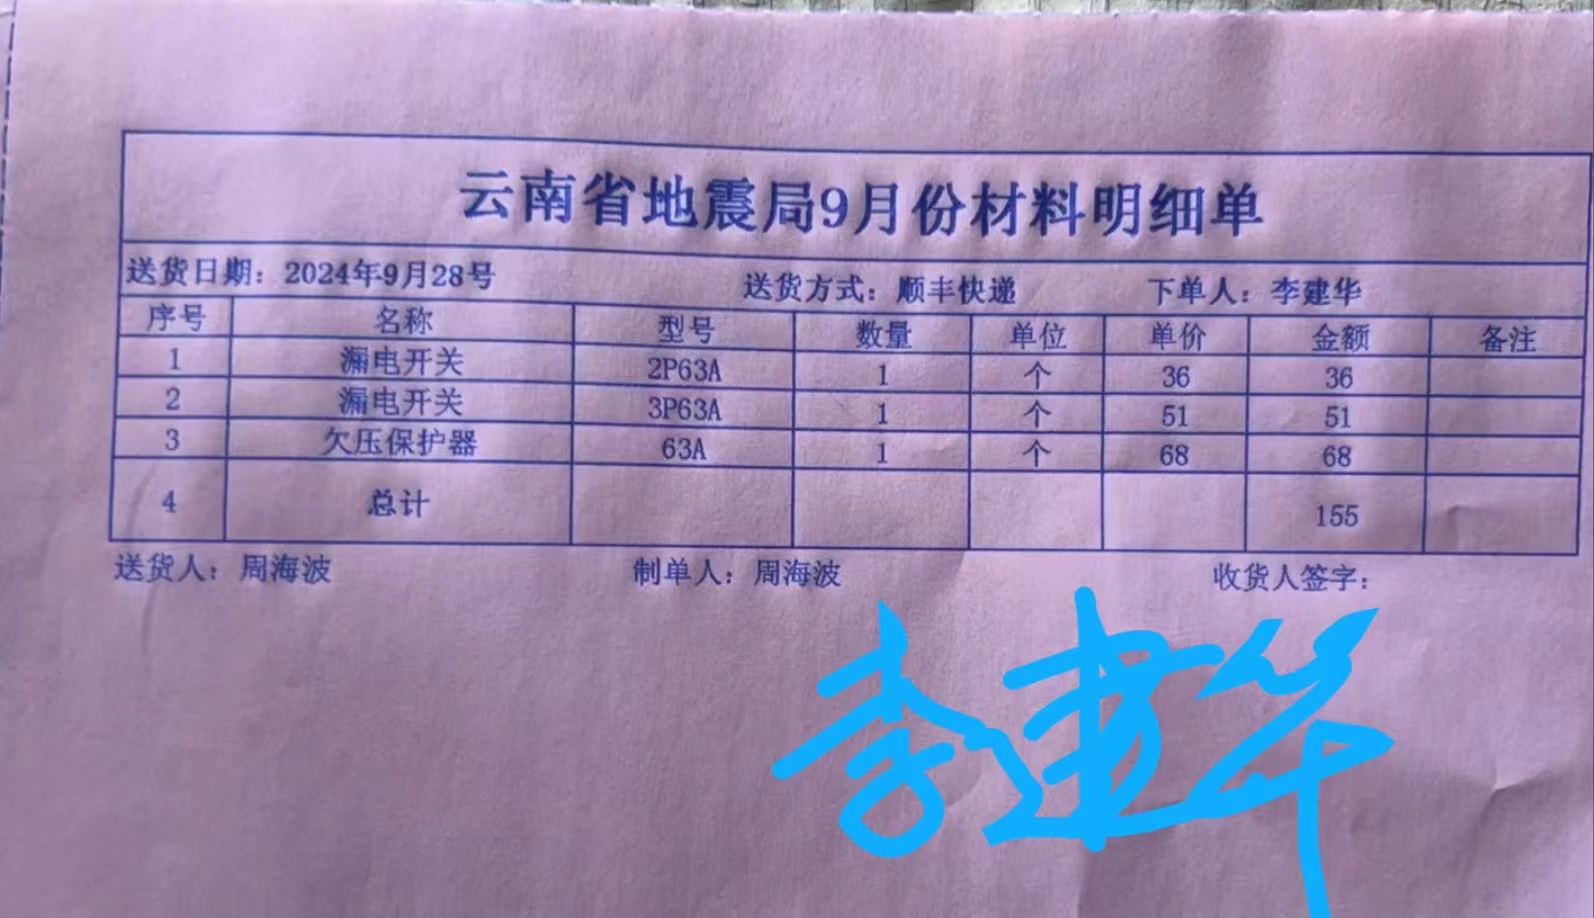 云南省地震局9月份材料明细单
送货日期：2024年9月28号 送货方式：顺丰快递 下单人：李建华
序号 名称 型号 数量 单位 单价 金额 备注
1 漏电开关 2P63A 1 个 36 36
2 漏电开关 3P63A 1 个 51 51
3 欠压保护器 63A 1 个 68 68
4 总计 155
送货人：周海波 制单人：周海波 收货人签字：
李建华